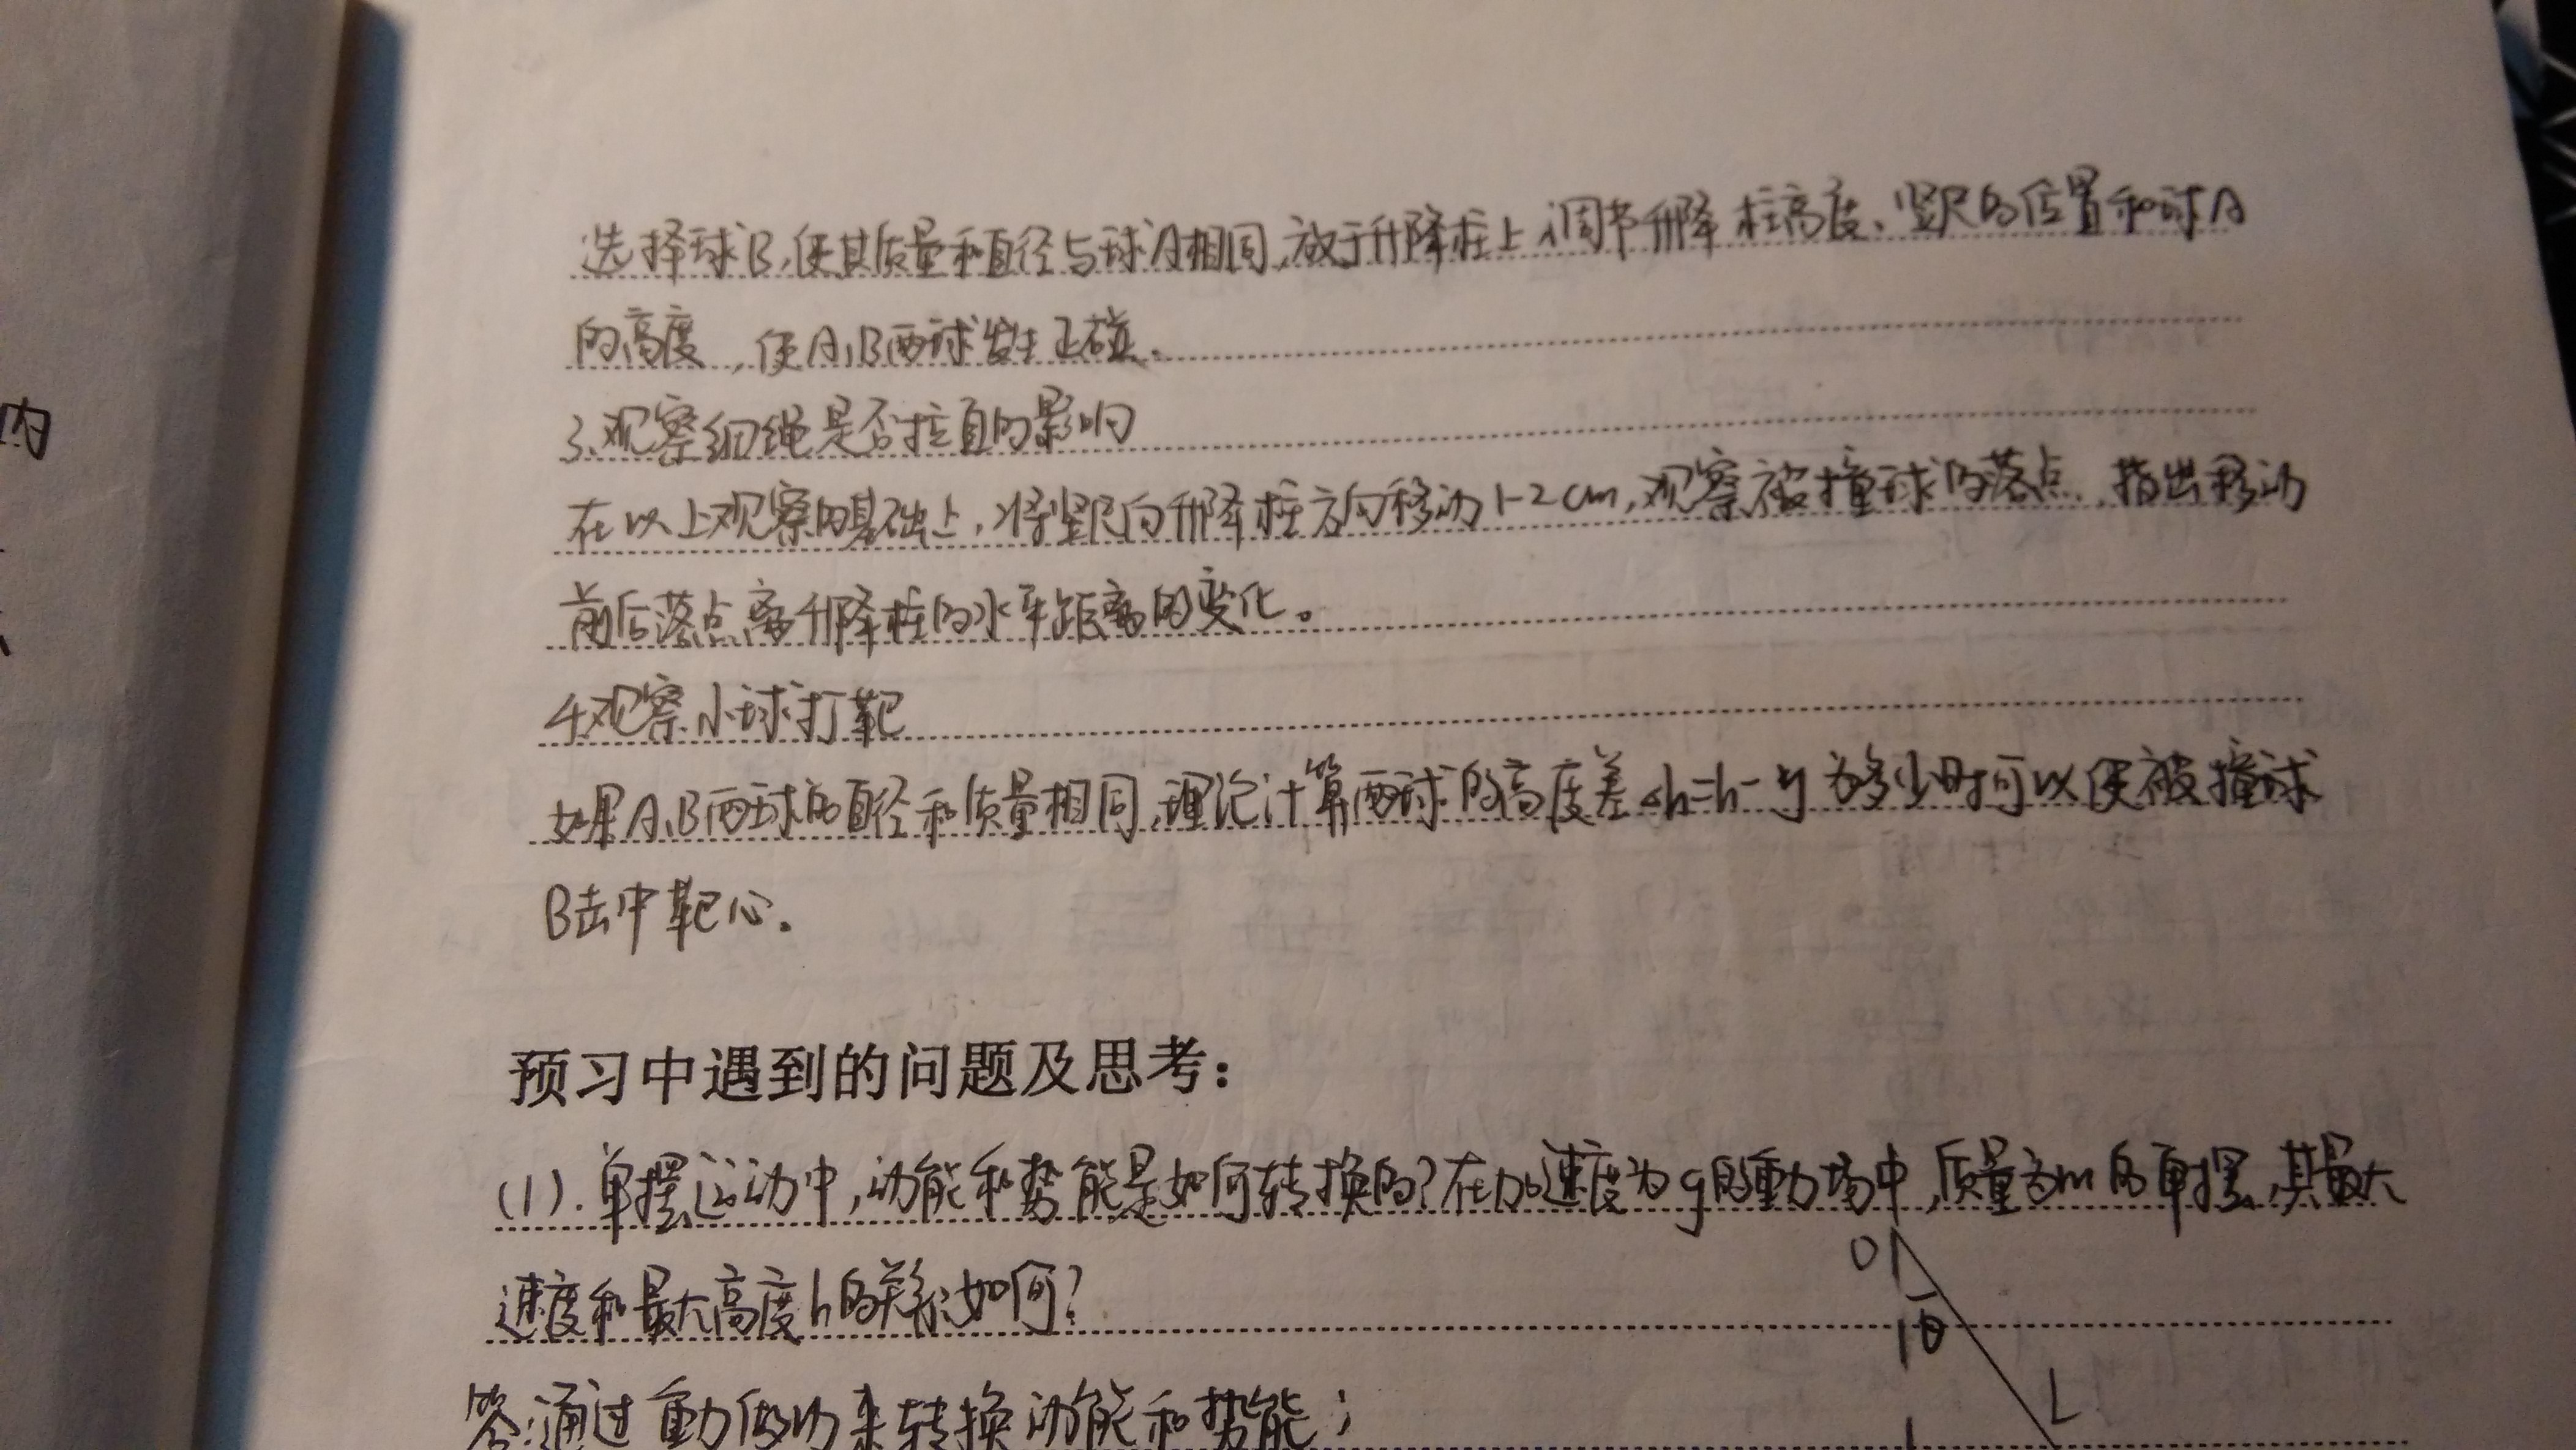 内
选择球B,使其质量和直径与球A相同,放于升降柱上,调节升降柱高度、竖尺的位置和球A
的高度,使A、B两球发生正碰.
3.观察细绳是否拉直的影响
在以上观察的基础上,将竖尺向升降柱方向移动1-2cm,观察被撞球的落点,指出移动
前后落点离升降柱的水平距离的变化。
4.观察小球打靶
如果A、B两球的直径和质量相同,理论计算两球的高度差Δh=h-y为多少时可以使被撞球
B击中靶心.
预习中遇到的问题及思考:
(1).单摆运动中,动能和势能是如何转换的?在加速度为g的重力场中,质量为m的单摆,其最大
速度和最大高度h的关系如何?
O
θ
L
答:通过重力做功来转换动能和势能;